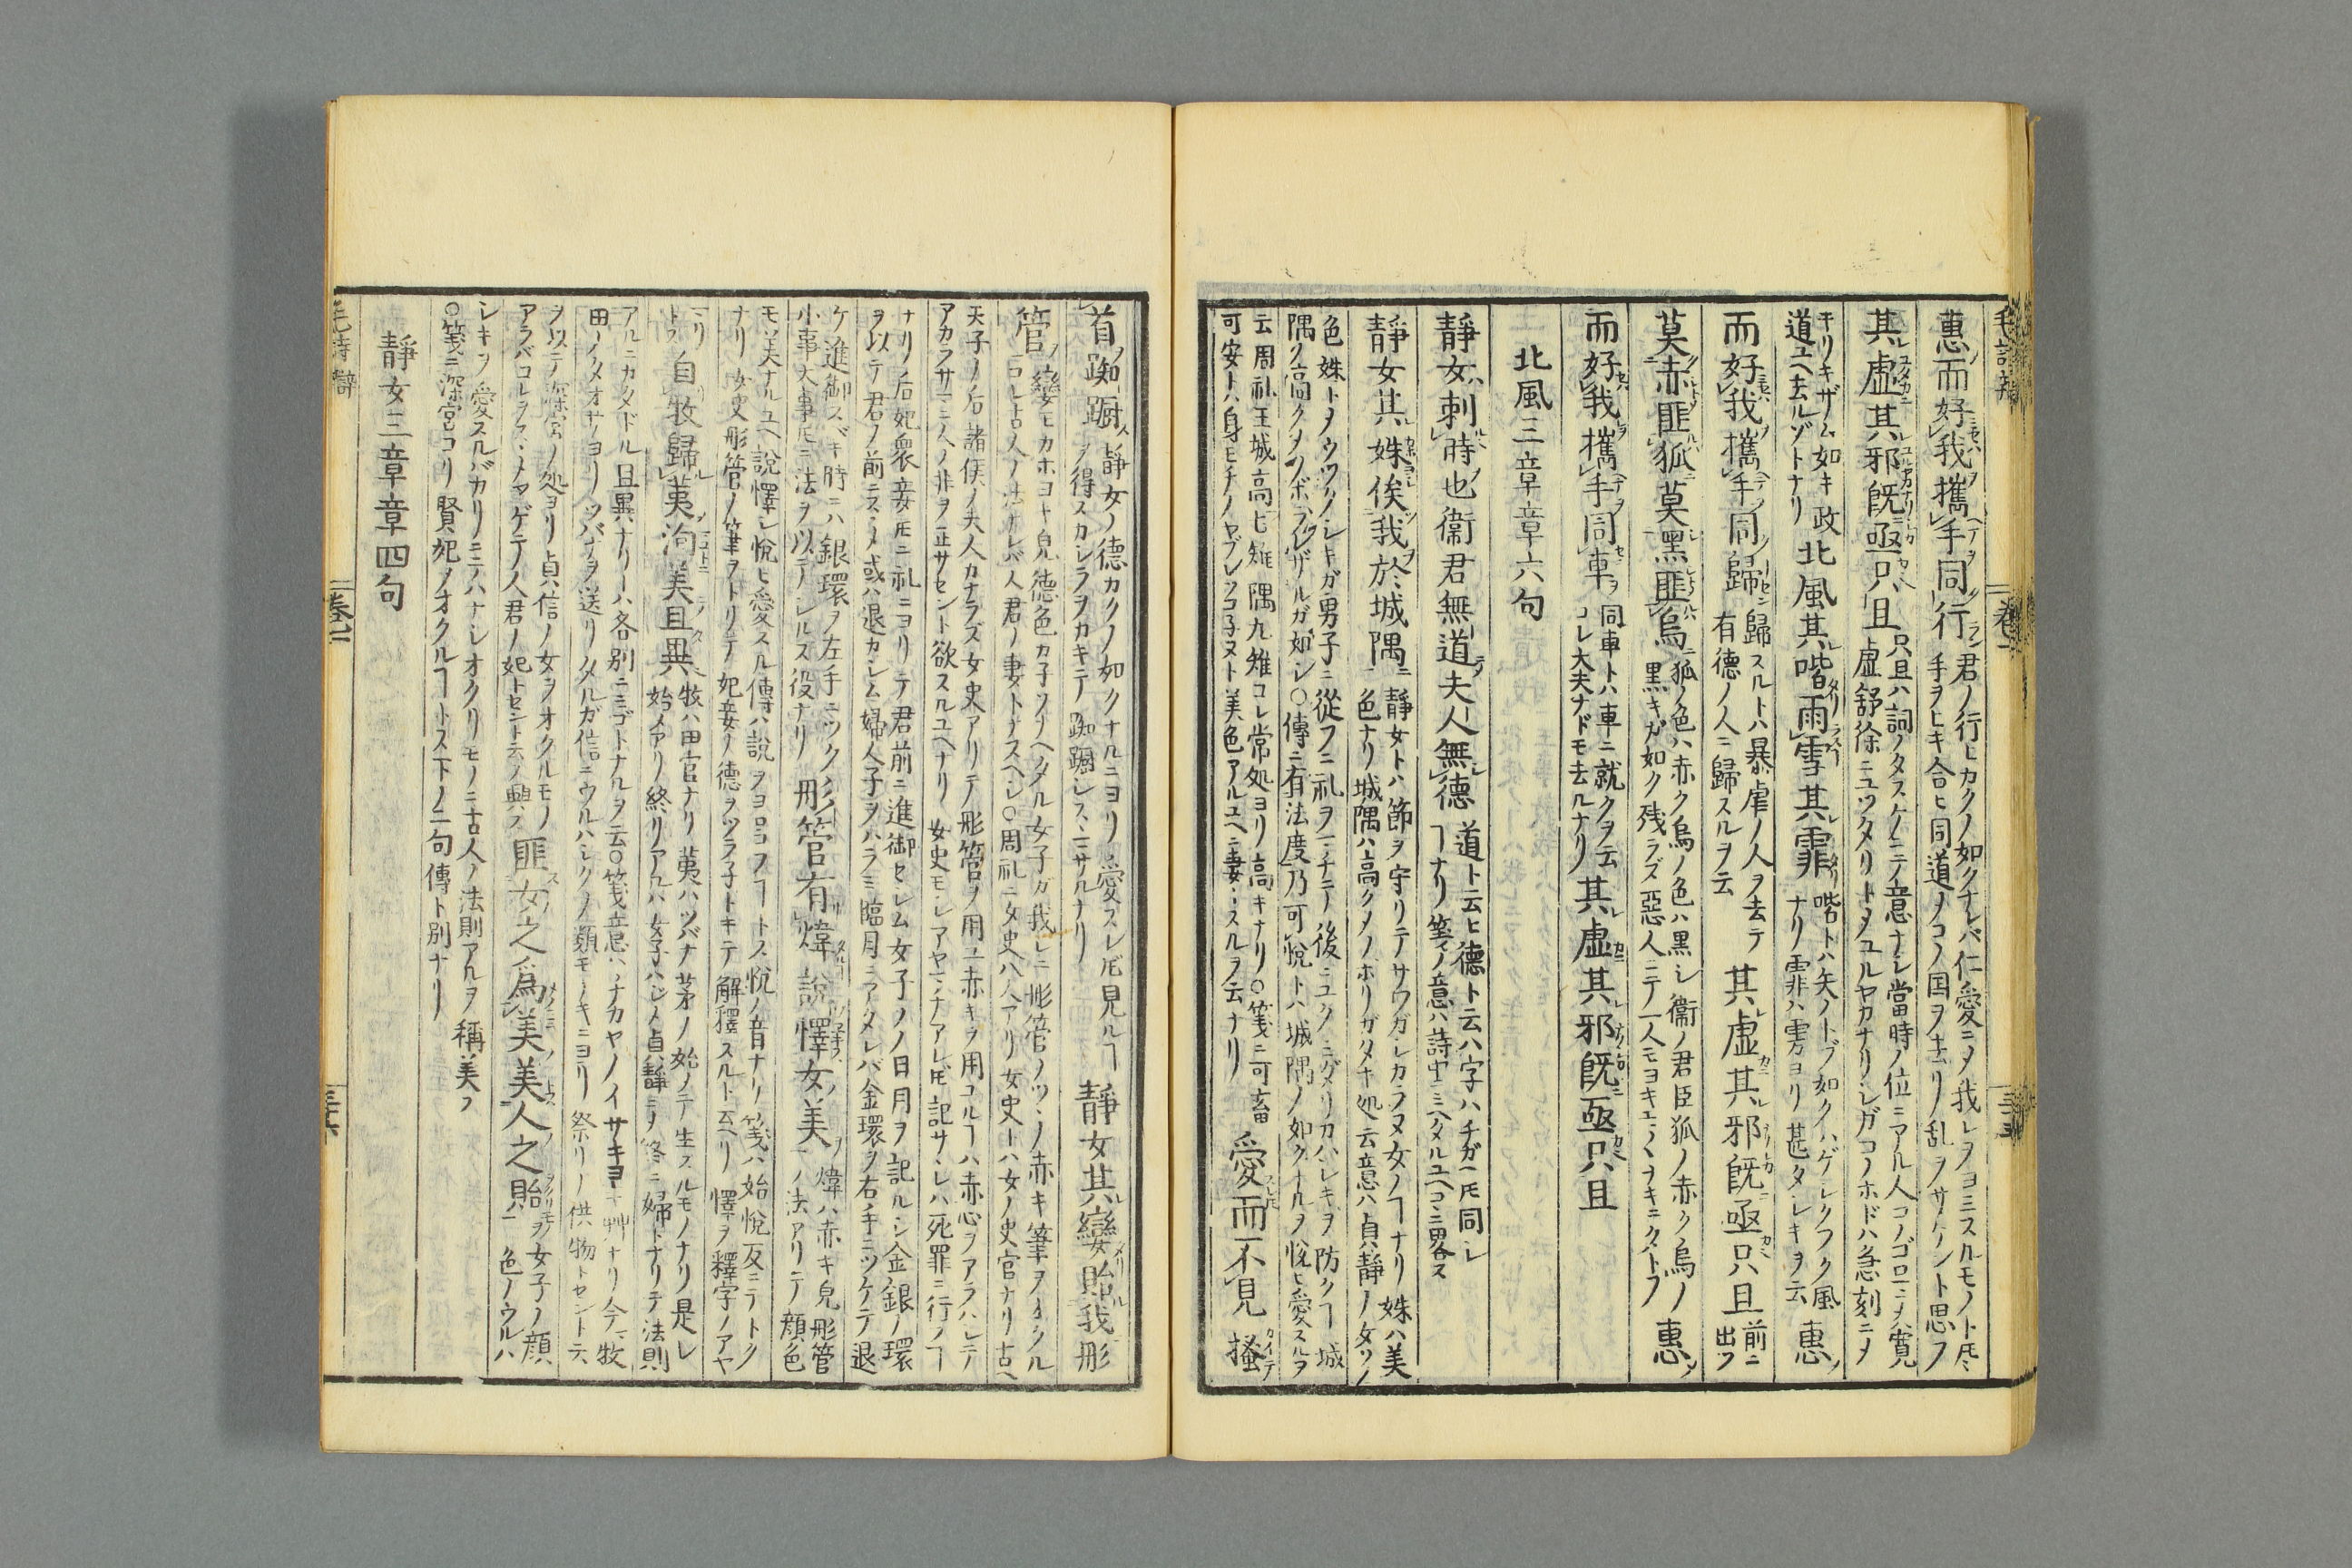 惠而好我攜手同行 君ノ行ヒカクノ如クナレバ仁愛ニメ我レヲヨミスルモノト𪜈ニ
手ヲヒキ合ヒ同道メコノ国ヲ去リ乱ヲサケント思フ
其虛其邪旣亟只且 只且ハ詞ノタスケニテ意ナシ當時ノ位ニアル人コノゴロマデハ寛
虛舒徐ニユツタリトメユルヤカナリシガコノホドハ急刻ニメ
キリキザム如キ政
道ユヘ去ルゾトナリ
北風其喈雨雪其霏 喈トハ矢ノトブ如クハゲシクフク風
ナリ霏ハ雱ヨリ甚タシキヲ云
惠
而好我攜手同歸 歸スルトハ暴虐ノ人ヲ去テ
有德ノ人ニ歸スルヲ云
其虛其邪旣亟只且 前ニ
出ツ
莫赤匪狐莫黑匪烏 狐ノ色ハ赤ク烏ノ色ハ黒シ衞ノ君臣狐ノ赤ク烏ノ
黒キガ如ク残ラズ惡人ニテ一人モヨキ
惠
而好我攜手同車 同車トハ車ニ就クヲ云
コレ大夫ナドモ去ルナリ
其虛其邪旣亟只且
北風三章章六句
靜女刺時也衞君無道夫人無德 道ト云ヒ德ト云ハ字ハチガヘ𪜈同シ
ヿナリ箋ノ意ハ詩中ニミヘタルユヘコヽニ畧ス
靜女其姝俟我於城隅 靜女トハ節ヲ守リテサワガシカラヌ女ノヿナリ姝ハ美
色ナリ城隅ハ高クメノボリガタキ処云意ハ貞靜ノ女ソノ
色姝トメウツクシキガ男子ニ從フニ礼ヲマチテ後ニユク防クヿ城
隅ク高クメノボラレザルガ如シ○傳ニ有法度乃可悅トハ城隅ノ如クナルヲ悅ヒ愛スルヲ
云周礼王城高七雉隅九雉コレ常処ヨリ高キナリ○箋ニ可畜
可安トハ身モチノヤブレ美色アルユヘニ妻ニスルヲ云ナリ
愛而不見 搔
首踟蹰 靜女ノ德カクノ如クナルニヨリ愛スレ𪜈見ルヿ
ヲ得スカシラヲカキテ踟蹰シスヽマサルナリ
靜女其孌貽我彤
管 孌モカホヨキ皃德色カ子ソナヘタル女子ガ我レニ彤管ノツヽノ赤キ筆ヲオクル
コレ古人ノ法ナレバ人君ノ妻トナスヘシ○周礼ニ女史八人アリ女史トハ女ノ史官ナリ古ヘ
天子ノ后諸侯ノ夫人カナラズ女史アリテ彤管ヲ用ユ赤キヲ用ユルヿハ赤心ヲアラハシテ
アカラサマニ人ノ非ヲ正サセント欲スルユヘナリ女史モシアヤマチアレ𪜈記サヽレハ死罪ニ行フヿ
ナリ后妃衆妾𪜈ニ礼ニヨリテ君前ニ進御セシム女子ノ日月ヲ記ルシ金銀ノ環
ヲ以テ君ノ前ニスヽメ或ハ退カシム婦人子ヲハラミ臨月ニアタレバ金環ヲ右手ニツケテ退
ケ進御スベキ時ニハ銀環ヲ左手ニツク
小事大事𪜈ニ法ヲ以テシルス役ナリ
彤管有煒說懌女美 煒ハ赤キ皃彤管
ノ法アリテ顔色
モ美ナルユヘ說懌シ悅ヒ愛スル傳ハ說ヲヨロコフヿトス悅ノ音ナリ箋ハ始悅反ニテトク
ナリ女史彤管ノ筆ヲトリテ妃妾ノ德ヲツラ子トキテ解釋スルト云ヘリ懌ヲ釋字ノアヤ
マリ
トス
自牧歸荑洵美且異 牧ハ田官ナリ荑ハツバナ茅ノ始メテ生スルモノナリ是レ
始メアリ終リアルハ女子ハジメ貞靜ニメ終ニ婦トナリテ法則
アルニカタドル且異ナリハ各別ニミゴトナルヲ云○箋意ハチカヤノイサキヨキ艸ナリ今牧
田ノイタオサヨリツバナヲ送リタルガ信ニウルハシクメ類モナキニヨリ祭リノ供物トセント云
ヲ以テ深宮ノ処ヨリ貞信ノ女ヲオクルモノ
アラバコレヲスヽメサヽゲテ人君ノ妃トセント云ノ興ス
匪女之爲美美人之貽 女子ノ顔
色ノウルハ
シキヲ愛スルバカリニテハナシオクリモノニ古人ノ法則アルヲ稱美ス
○箋ニ深宮ヨリ賢妃ヲオクルヿトス下ノ二句傳ト別ナリ
靜女三章章四句
毛詩辯 卷二